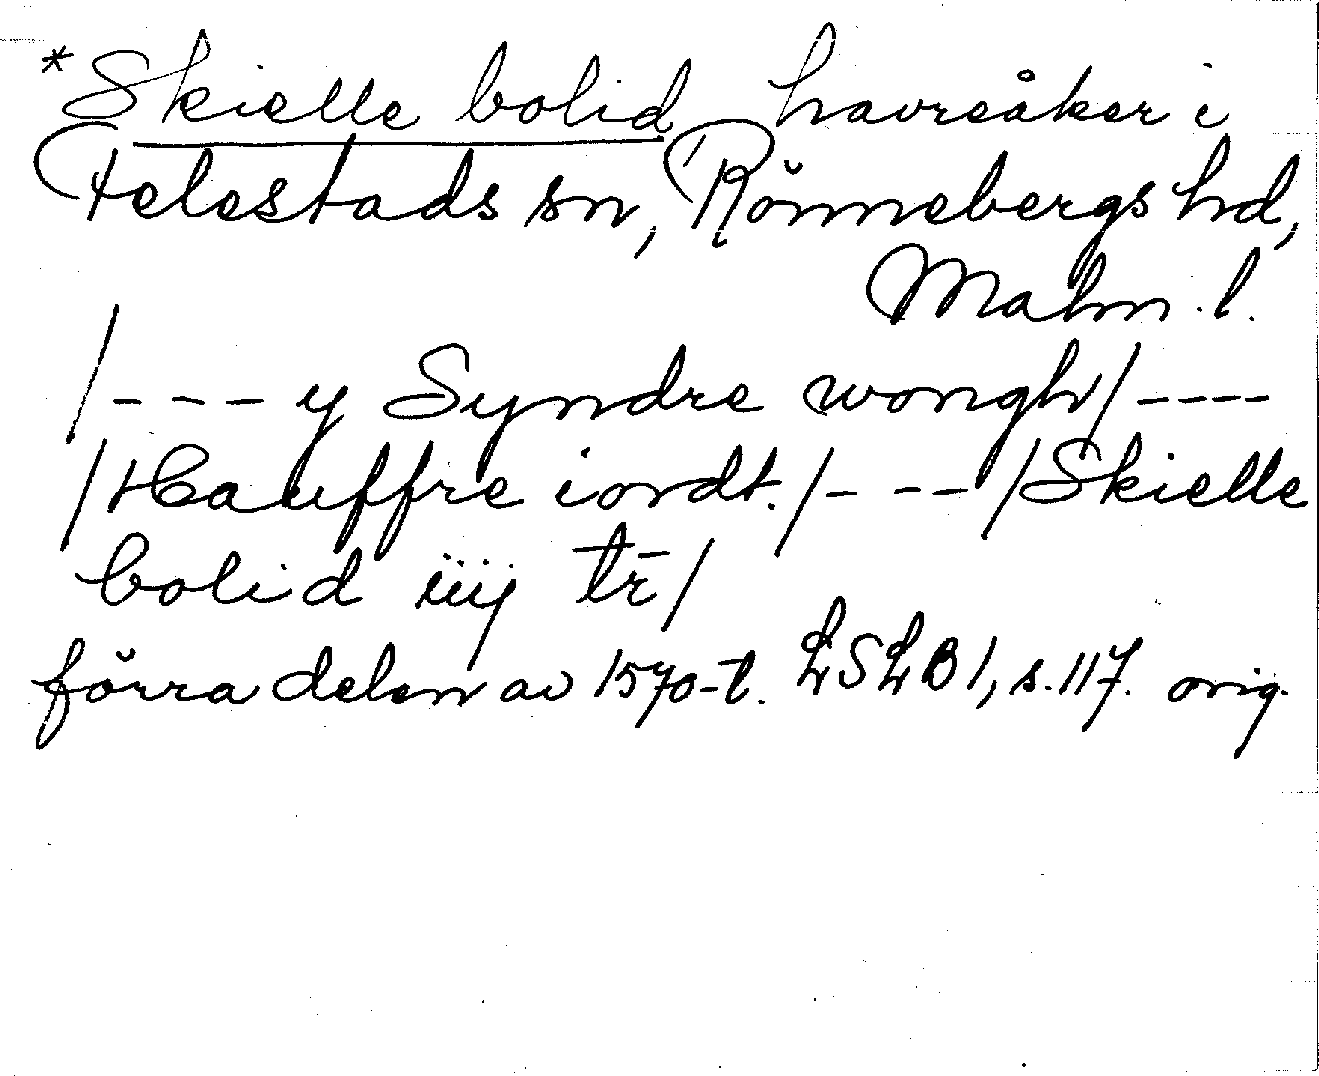 *Skielle bolid havreåker i
Felestads sn, Rönnebergs hd,
Malm. l.
/--- y Syndre wongh/----
/Hauffre iordt./----/Skielle
bolid iiij tr̄/
förra delen av 1570-t. LSLB 1, s. 117. orig.